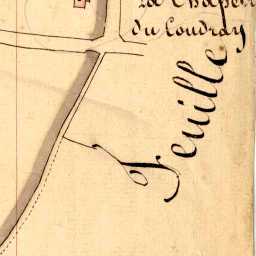 La Chapelle
du Coudray
Feuille